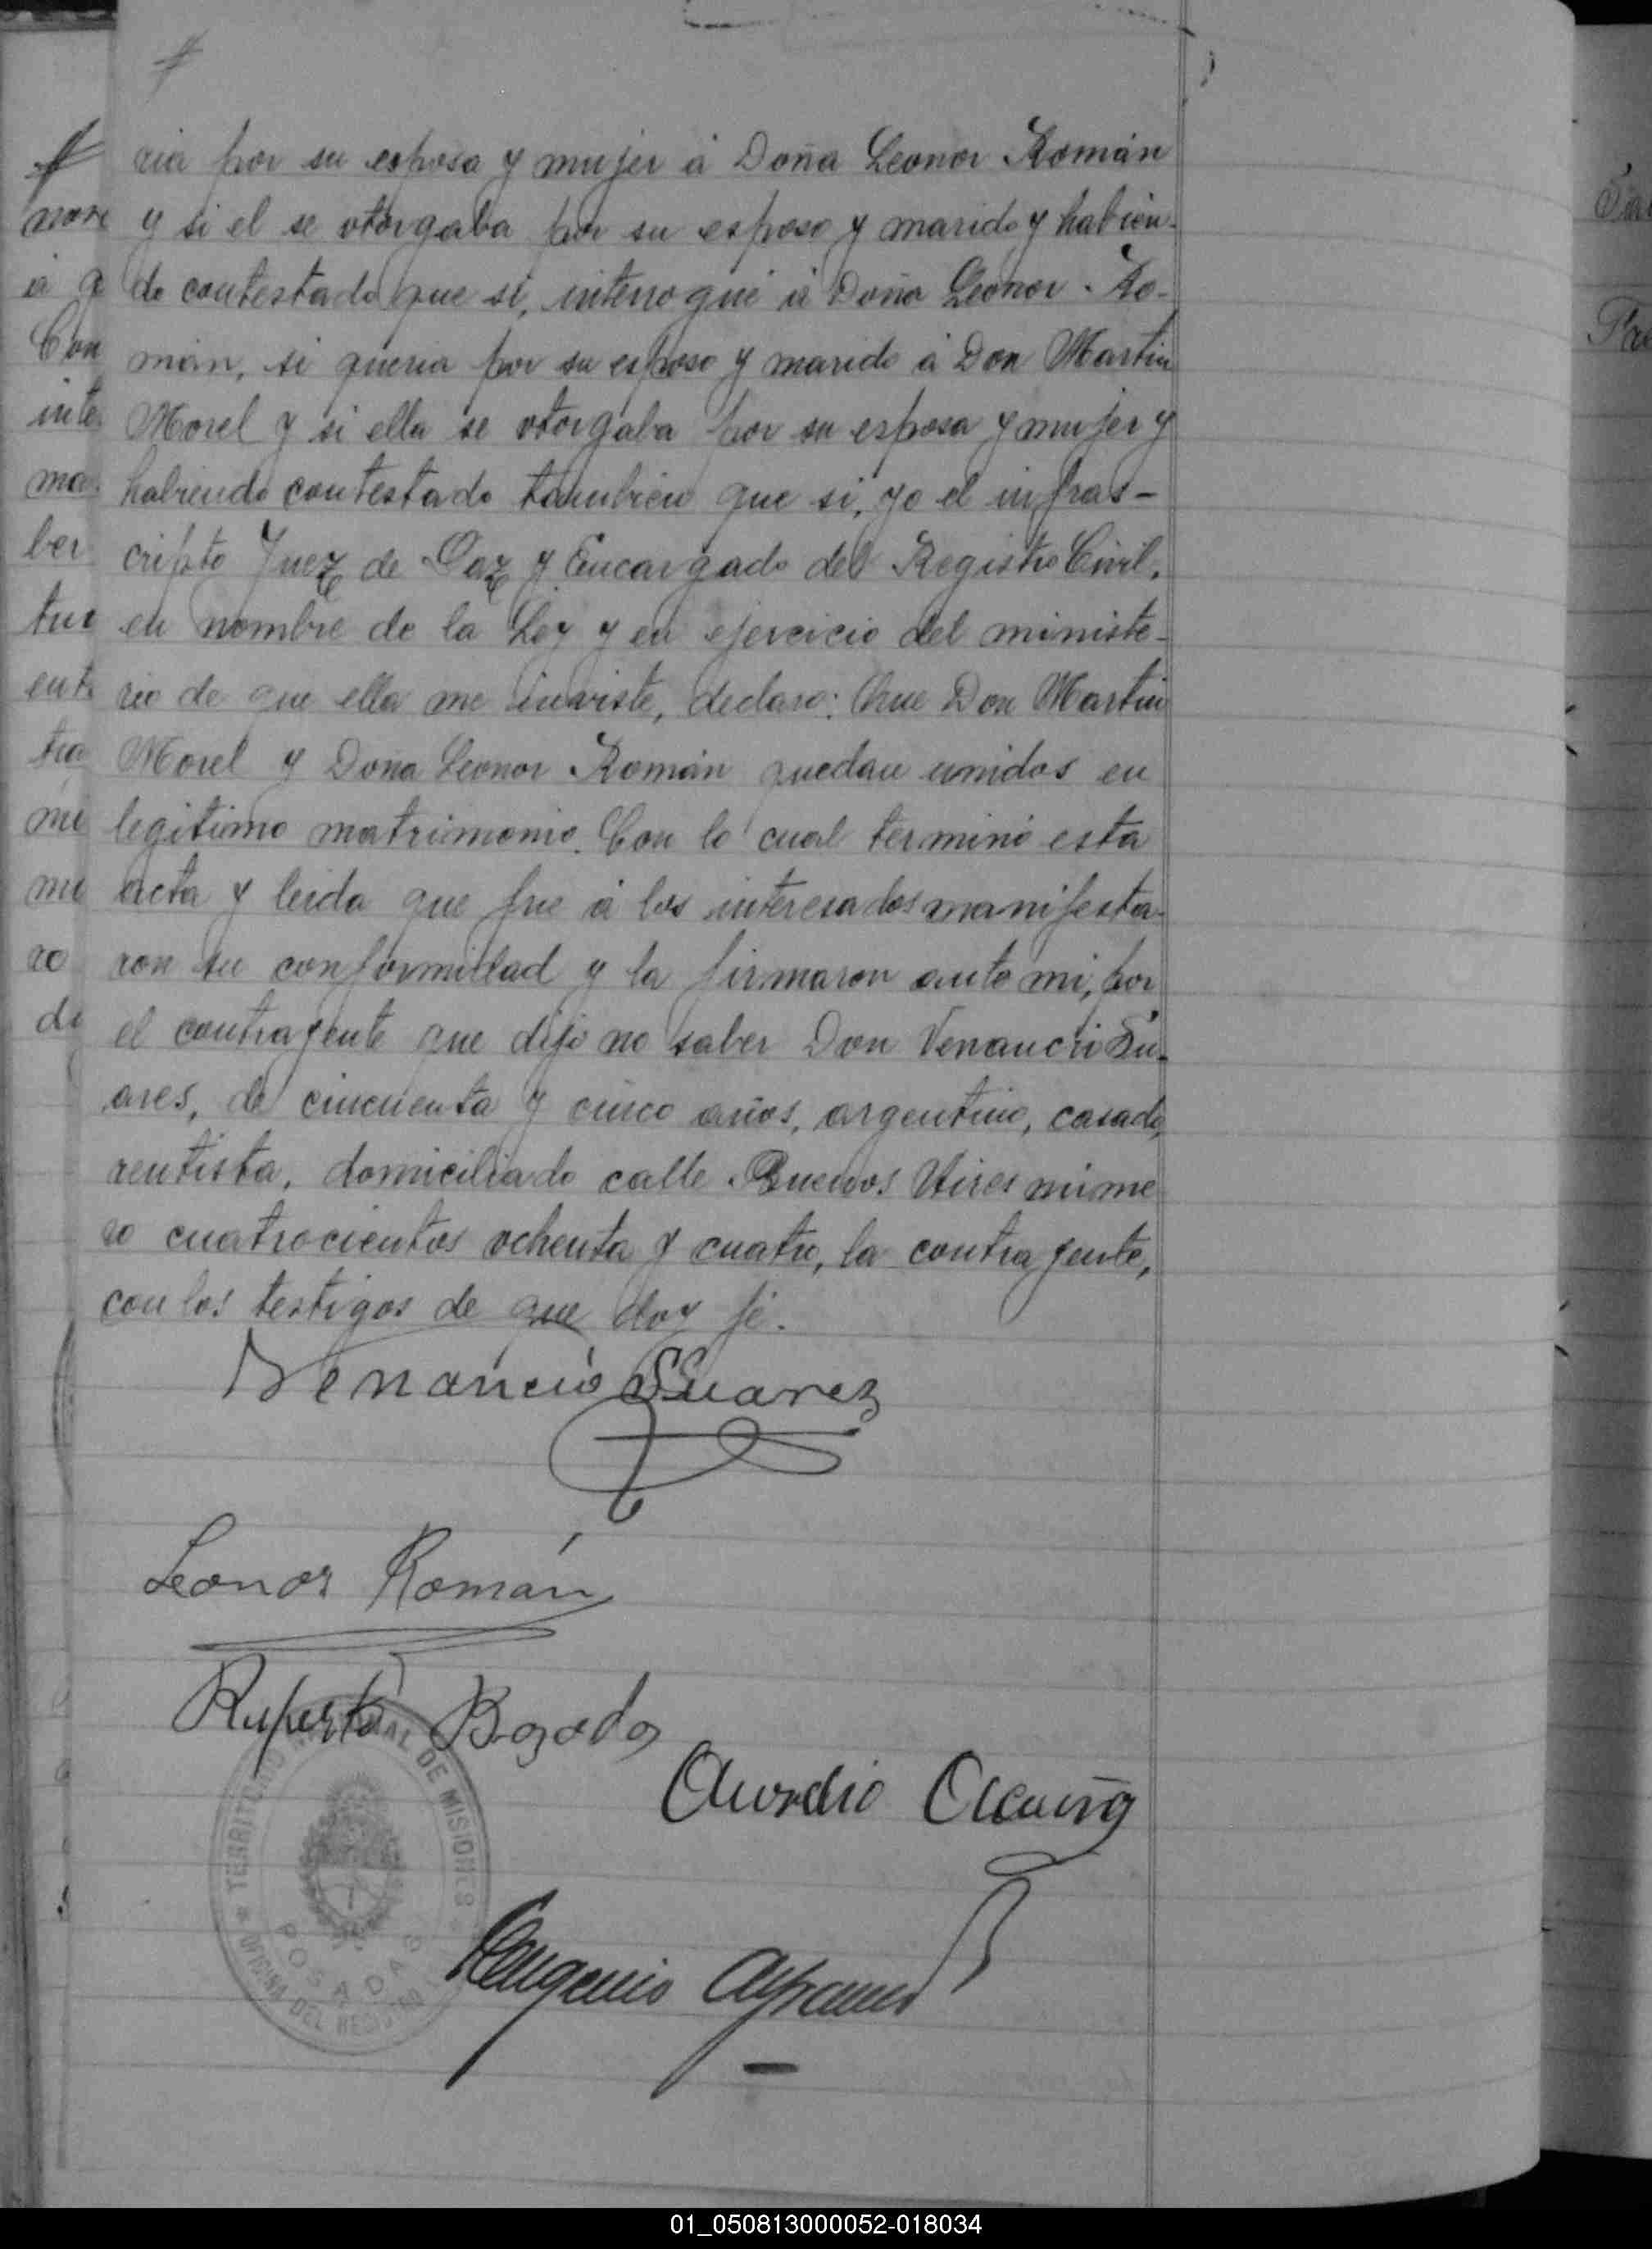 ria por su esposa y mujer á Doña Leonor Román
y si el se otorgaba por su esposo y marido y habien-
do contestado que si, interrogué á Doña Leonor Ro-
mán, si queria por su esposo y marido á Don Martin
Morel y si ella se otorgaba por su esposa y mujer y
habiendo contestado tambien que si, yo el infras-
cripto Juez de Paz y Encargado del Registro Civil,
en nombre de la Ley y en ejercicio del ministe-
rio de que ella me inviste, declaro: Que Don Martin
Morel y Doña Leonor Román quedan unidos en
legitimo matrimonio. Con lo cual terminó esta
acta y leida que fue á los interesados manifesta-
ron su conformidad y la firmaron ante mi, por
el contrayente que dijo no saber Don Venancio Su-
ares, de cincuenta y cinco años, argentino, casado,
rentista, domiciliado calle Buenos Aires núme
ro cuatrocientos ochenta y cuatro, la contrayente,
con los testigos de que doy fé.
Venancio Suarez
Leonor Román
Ruperto
Aurelio
Eugenio
TERRITORIO NACIONAL DE MISIONES
POSADAS
OFICINA DEL REGISTRO
nore
á q
Con
inte
ma
ber
tur
ent
tra
me
mi
ro
de
01_050813000052-018034